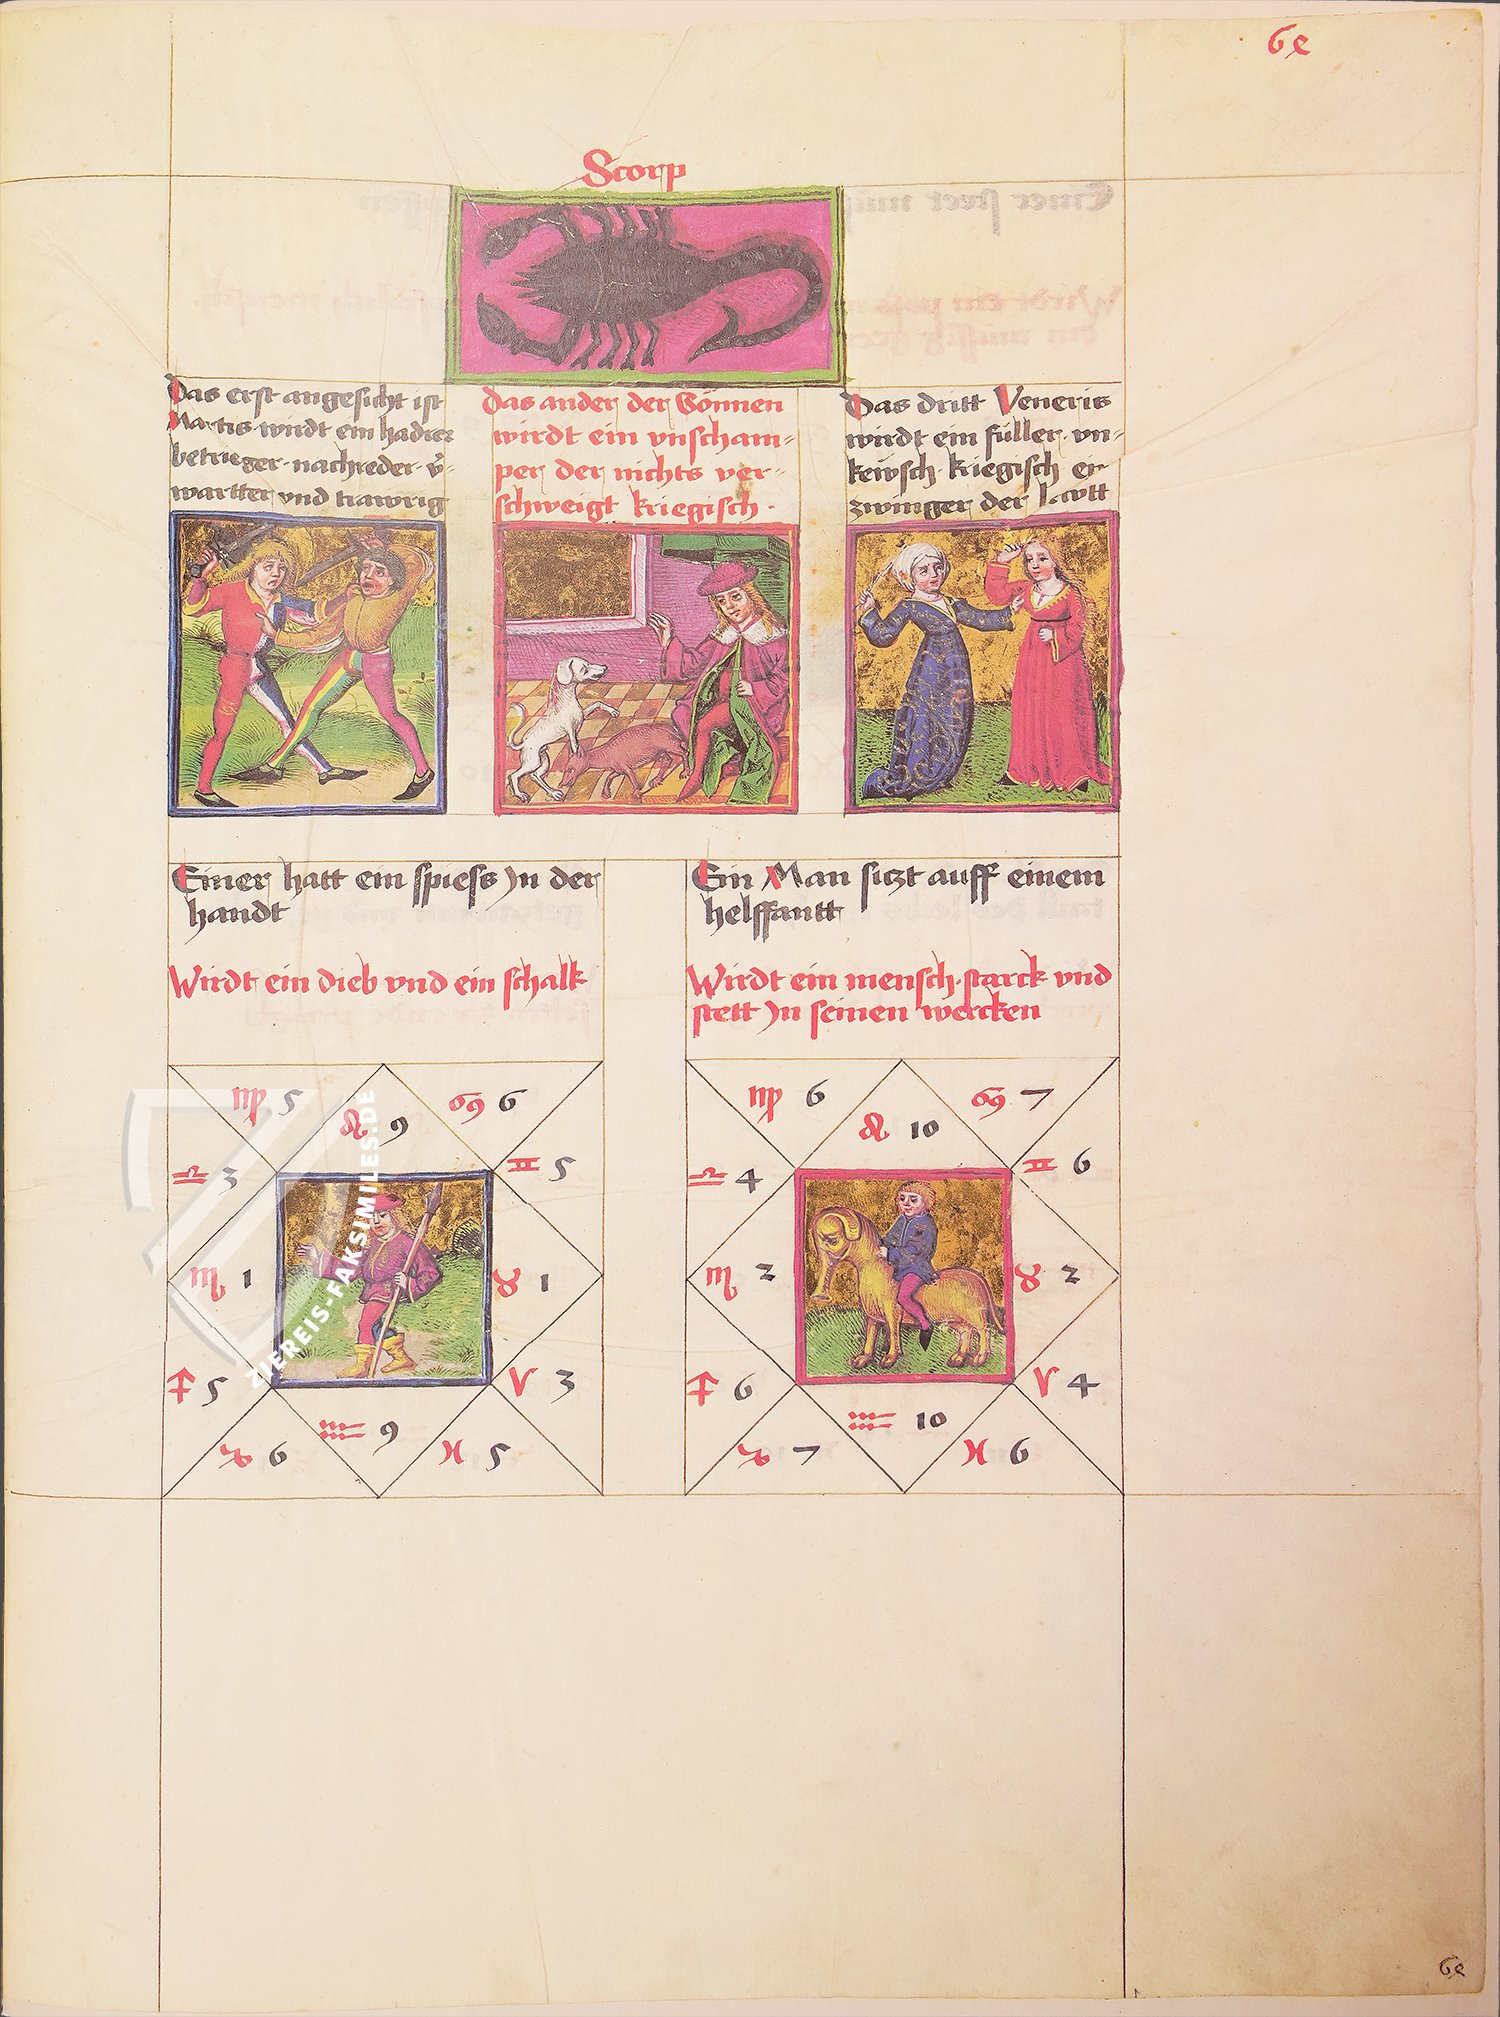 6e
Scorp
Das erst angesicht ist
Martis wirdt ein hadrer
betrieger · nachreder · v̈-
wartter vnd trawrig
das ander der Sonnen
wirdt ein vnscham=
per der nichts ver=
schweigt kriegisch ·
Das dritt Veneris
wirdt ein füller · vn=
keẅsch · kriegisch er
zwinger der
Einer hatt ein spiess Jn der
handt
Wirdt ein dieb vnd ein schalk
Ein Man siczt auff einem
helffantt
Wirdt ein mensch · starck vnd
stett Jn seinen wercken
♍ 5 ♌ 9 ♋ 6
♎ 3 ♊ 5
♏ 1 ♉ 1
♐ 5 ♈ 3
♑ 6 ♒ 9 ♓ 5
♍ 6 ♌ 10 ♋ 7
♎ 4 ♊ 6
♏ 2 ♉ 2
♐ 6 ♈ 4
♑ 7 ♒ 10 ♓ 6
ZIEREIS-FAKSIMILES.DE
6e